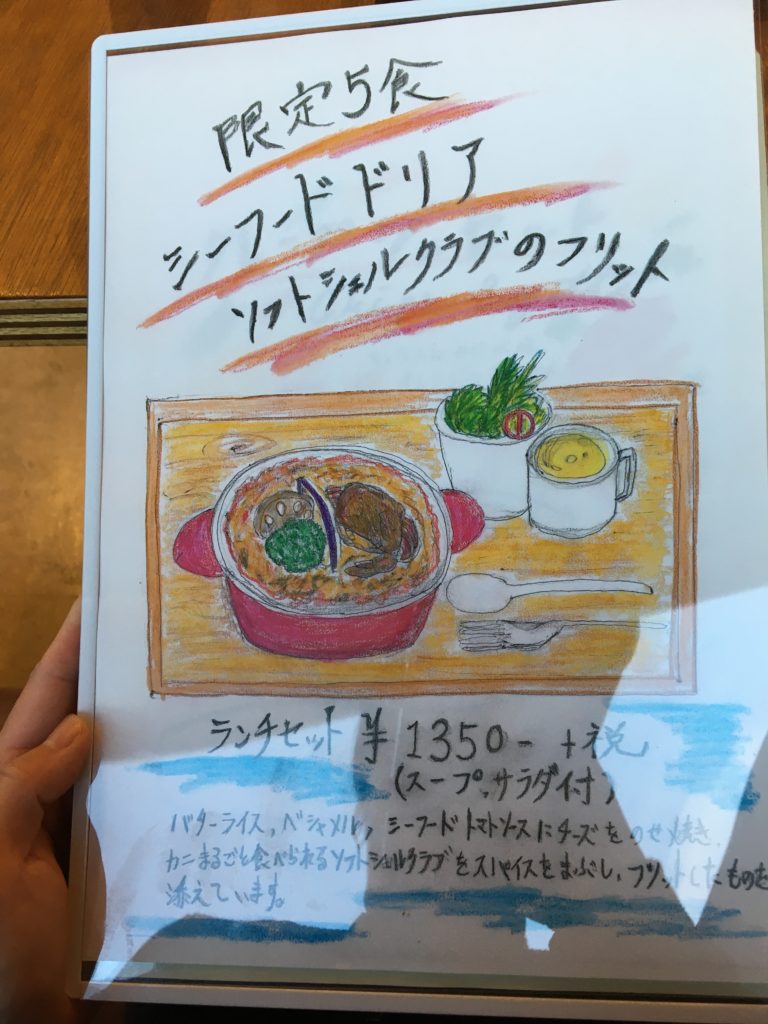 限定5食
シーフードドリア
ソフトシェルクラブのフリット
ランチセット ¥1350- +税
(スープ、サラダ付)
バターライス、ベシャメル、シーフードトマトソースにチーズをのせ焼き、
カニまるごと食べられるソフトシェルクラブをスパイスをまぶし、フリットしたものを
添えています。